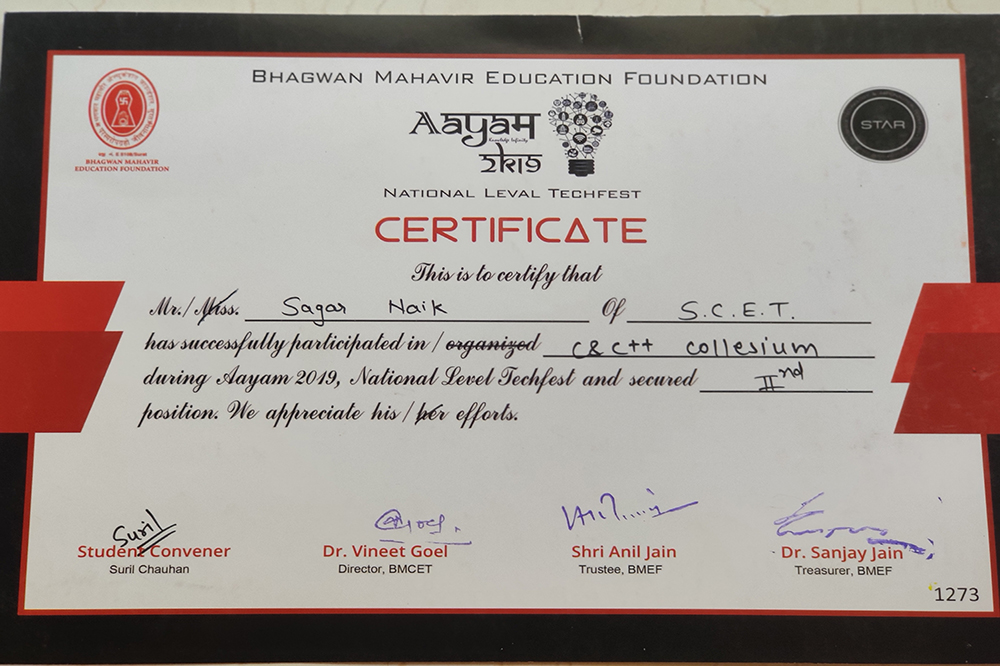 BHAGWAN MAHAVIR EDUCATION FOUNDATION
Aayam
Knowledge Infinity
2k19
STAR
BHAGWAN MAHAVIR
EDUCATION FOUNDATION
NATIONAL LEVAL TECHFEST
CERTIFICATE
This is to certify that
Mr./Miss. Sagar Naik Of S.C.E.T.
has successfully participated in / organized C & C++ collesium
during Aayam 2019, National Level Techfest and secured IInd
position. We appreciate his / her efforts.
Suril
Student Convener
Suril Chauhan
Dr. Vineet Goel
Director, BMCET
Shri Anil Jain
Trustee, BMEF
Dr. Sanjay Jain
Treasurer, BMEF
1273